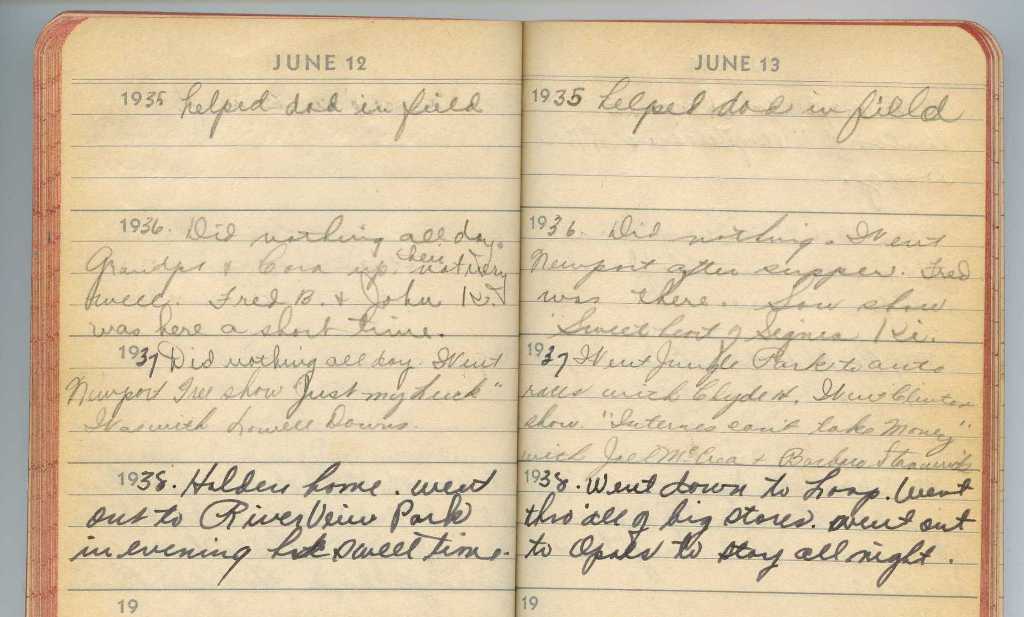 JUNE 12
1935 helped dad in field
1936. Did nothing all day.
Grandpa & Cora up here not very
well. Fred B. & John K.
was here a short time.
1937 Did nothing all day. Went
Newport Free show "Just my Luck"
Was with Lowell Downs.
1938. Holdens home. went
out to RiverView Park
in evening had sweet time.
19
JUNE 13
1935 helped dad in field
1936. Did nothing. Went
Newport after supper. Fred
was there. Saw show
"Sweetheart of Sigma Ki.
1937 Went Jungle Park to auto
races with Clyde H. Went Clinton
show. "Internes can't take Money"
with Joel McCrea & Barbara Stanwick
1938. Went down to Loop. Went
thro' all of big stores. went out
to Opals to stay all night.
19